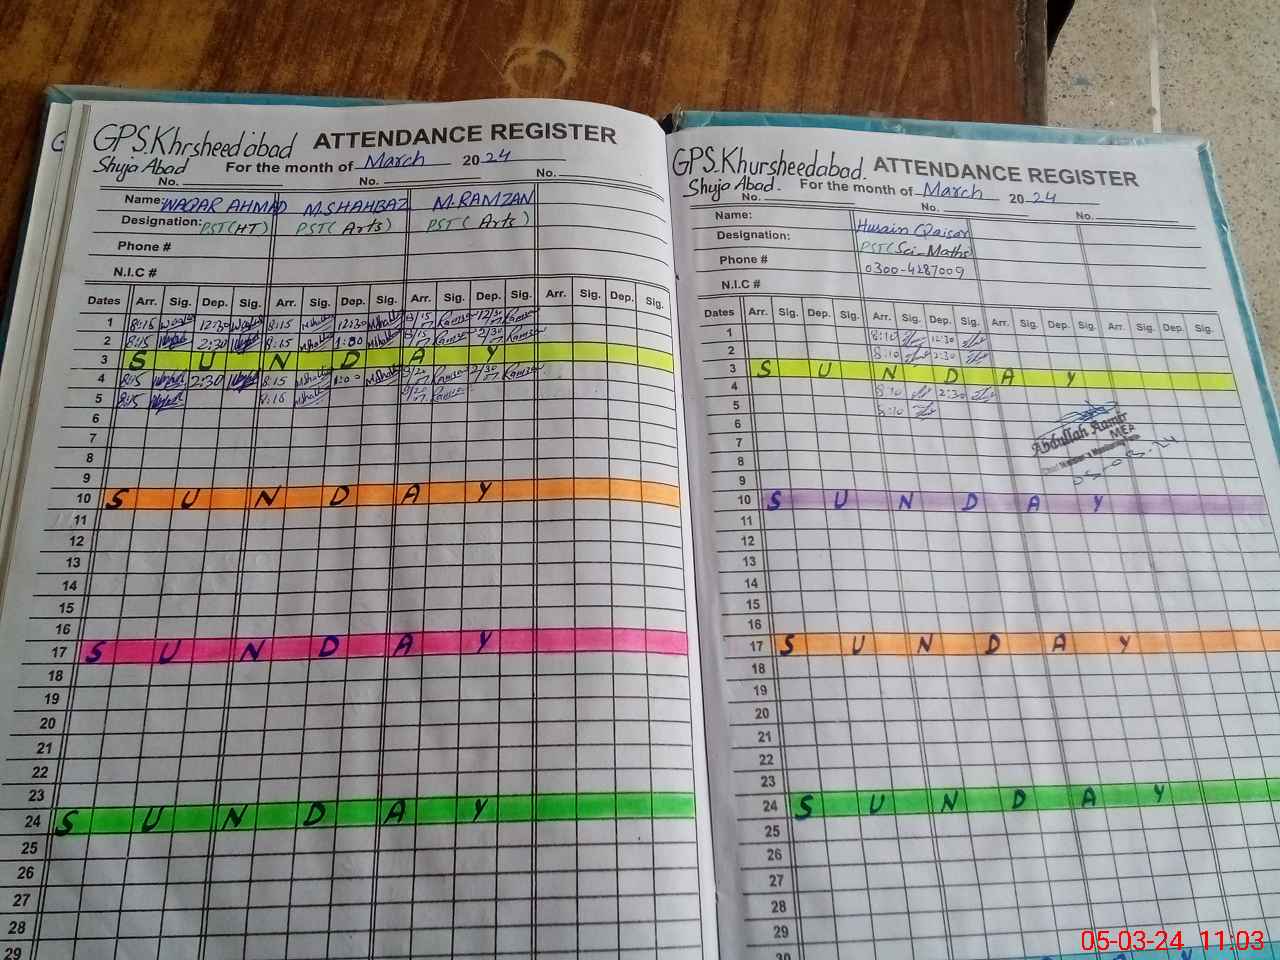 GPS.Khrsheedabad ATTENDANCE REGISTER
Shuja Abad For the month of March 2024
No. No. No.
Name: WAQAR AHMAD M.SHAHBAZ M.RAMZAN
Designation: PST(HT) PST(Arts) PST(Arts)
Phone #
N.I.C #
Dates Arr. Sig. Dep. Sig. Arr. Sig. Dep. Sig. Arr. Sig. Dep. Sig. Arr. Sig. Dep. Sig.
1 8:15 12:30 8:15 12:30 8/15 12/30
2 8:15 2:30 8:15 1:00 8/15 2/30
3 SUNDAY
4 8:15 2:30 8:15 1:00 8/20 2/30
5 8:15 8:15 8/20
6
7
8
9
10 SUNDAY
11
12
13
14
15
16
17 SUNDAY
18
19
20
21
22
23
24 SUNDAY
25
26
27
28
29
GPS.Khursheedabad. ATTENDANCE REGISTER
Shuja Abad. For the month of March 2024
No. No. No.
Name: Husain Qaisar
Designation: PST(Sci-Maths)
Phone # 0300-4287009
N.I.C #
Dates Arr. Sig. Dep. Sig. Arr. Sig. Dep. Sig. Arr. Sig. Dep. Sig. Arr. Sig. Dep. Sig.
1 8:10 12:30
2 8:10 2:30
3 SUNDAY
4 8:10 2:30
5 8:10
6
7
8
9
10 SUNDAY
11
12
13
14
15
16
17 SUNDAY
18
19
20
21
22
23
24 SUNDAY
25
26
27
28
29
30
Abdullah Aamir
MEA
05-03-24
05-03-24 11:03